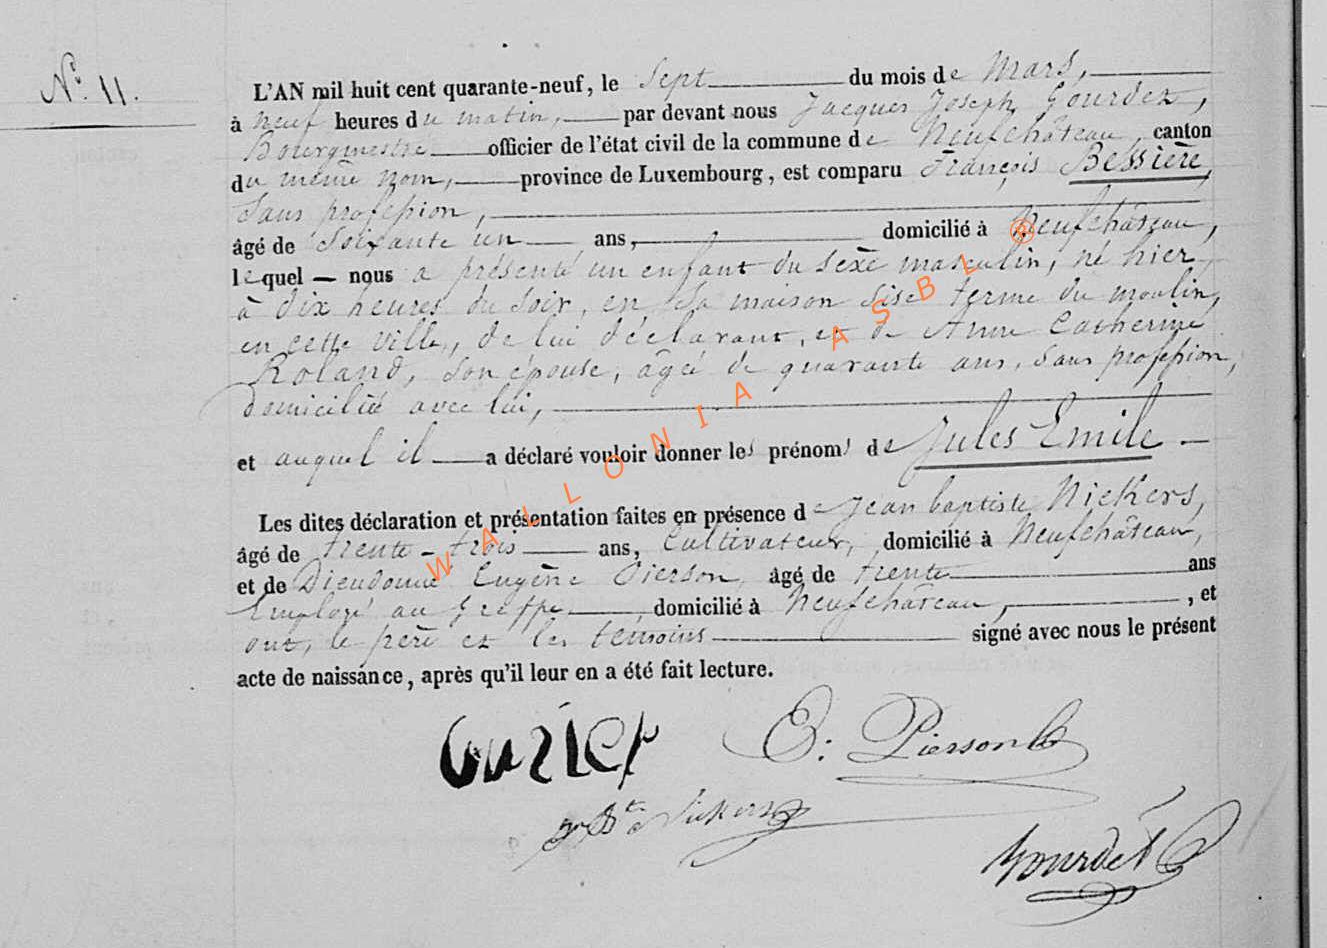 N° 11.
L'AN mil huit cent quarante-neuf, le Sept du mois de Mars,
à neuf heures du matin, par devant nous Jacques Joseph Gourdez,
Bourgmestre officier de l'état civil de la commune de Neufchâteau, canton
du même nom, province de Luxembourg, est comparu François Bessière,
Sans profession,
âgé de Soixante un ans, domicilié à Neufchâteau,
lequel nous a présenté un enfant du sexe masculin, né hier
à dix heures du soir, en sa maison sise ferme du moulin,
en cette ville, de lui déclarant, et de Anne Catherine
Roland, son épouse, âgée de quarante ans, sans profession,
domicilié avec lui,
et auquel il a déclaré vouloir donner les prénoms de Jules Emile
Les dites déclaration et présentation faites en présence de Jean baptiste Nickers,
âgé de trente-trois ans, Cultivateur, domicilié à Neufchâteau,
et de Dieudonné Eugène Pierson, âgé de trente ans
Employé au greffe domicilié à Neufchâteau, , et
ont, le père et les témoins signé avec nous le présent
acte de naissance, après qu'il leur en a été fait lecture.
E. Pierson
Nickers
Gourdet
WALLONIA ASBL